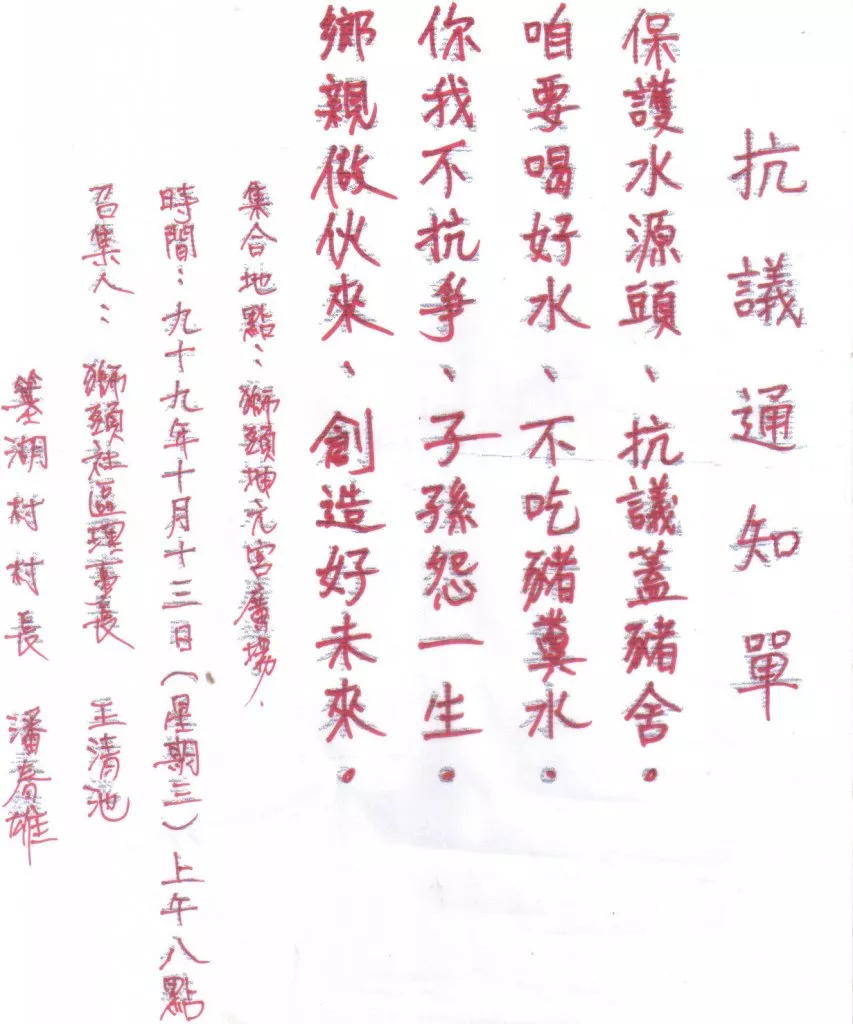 抗議通知單
保護水源頭、抗議蓋豬舍。
咱要喝好水、不吃豬糞水。
你我不抗爭、子孫怨一生。
鄉親做伙來、創造好未來。
集合地點：獅頭坤元宮廣場
時間：九十九年十月十三日(星期三)上午八點
召集人：獅頭社區理事長 王清池
湖村村長 潘雄